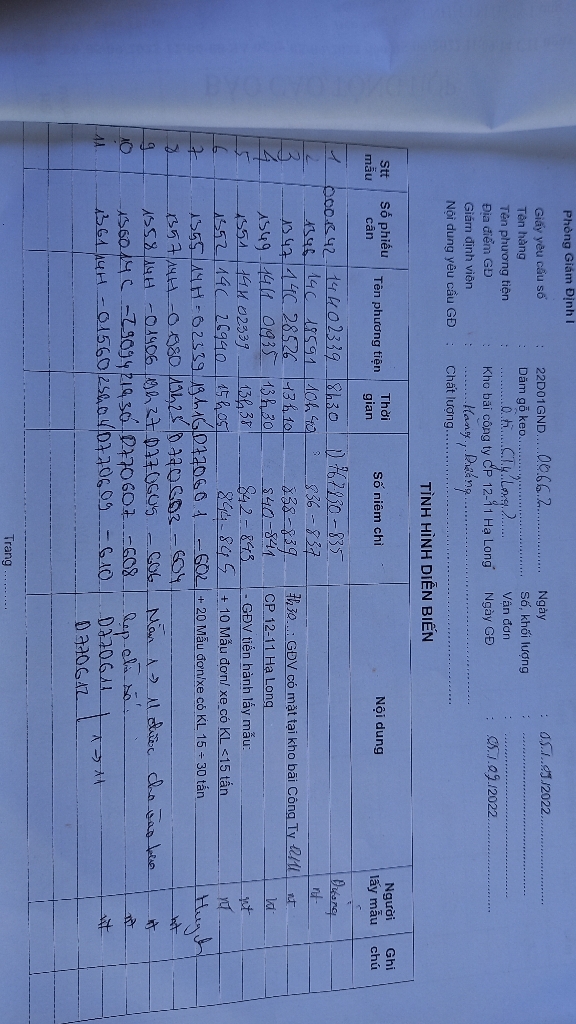 Phòng Giám Định I
Giấy yêu cầu số : 22D01GND....0066.2........ Ngày : 05./..09./2022
Tên hàng : Dăm gỗ keo........ Số, khối lượng : ........
Tên phương tiện : ........ Vận đơn : ........
Địa điểm GĐ : Kho bãi công ty CP 12-11 Hạ Long Ngày GĐ : 05./.09./2022
Giám định viên : ........ Dương
Nội dung yêu cầu GĐ : Chất lượng........
TÌNH HÌNH DIỄN BIẾN
Stt mẫu Số phiếu cân Tên phương tiện Thời gian Số niêm chì Nội dung Người lấy mẫu Ghi chú
1 0001342 14H02339 8h30 D767830-835 Dương
2 1346 14C 18591 10h40 836-837 nt
3 1347 14C 28526 13h10 838-839 7h30...: GĐV có mặt tại kho bãi Công Ty nt
4 1349 14H 01935 13h30 840-841 CP 12-11 Hạ Long nt
5 1351 14H 02339 13h38 842-843 - GĐV tiến hành lấy mẫu: nt
6 1352 14C 26940 15h05 844-845 + 10 Mẫu đơn/ xe có KL <15 tấn nt
7 1355 14H-02339 19h16 D770601-602 + 20 Mẫu đơn/xe có KL 15 ÷ 30 tấn Huỳnh
8 1357 14H-01080 19h25 D770603-604 nt
9 1358 14H-01906 19h27 D770605-606 1 → 11 được cho vào nt
10 1360 14C-29094 21h30 D770607-608 nt
11 1361 14H-01560 23h04 D770609-610 D770611 1 → 11 nt
D770612
Trang ........